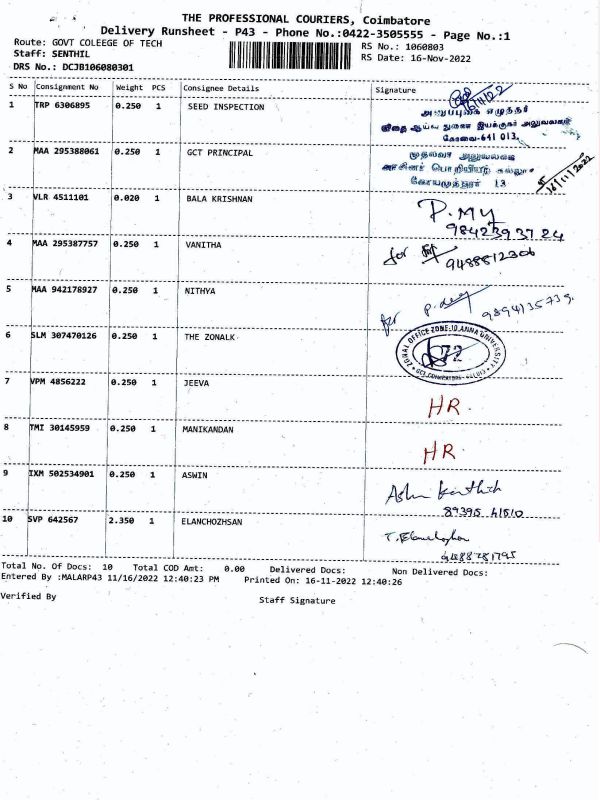 THE PROFESSIONAL COURIERS, Coimbatore
Delivery Runsheet - P43 - Phone No.:0422-3505555 - Page No.:1
Route: GOVT COLEEGE OF TECH
RS No.: 1060803
Staff: SENTHIL
RS Date: 16-Nov-2022
DRS No.: DCJB106080301
S No Consignment No Weight PCS Consignee Details Signature
1 TRP 6306895 0.250 1 SEED INSPECTION
அலுவலகம்
கோவை-641 013.
2 MAA 295388061 0.250 1 GCT PRINCIPAL
முதல்வர் அலுவலகம்
அரசினர் பொறியியற் கல்லூரி
கோயமுத்தூர் 13
16/11/2022
3 VLR 4511101 0.020 1 BALA KRISHNAN
P.My
9842393724
4 MAA 295387757 0.250 1 VANITHA
for
9488812306
5 MAA 942178927 0.250 1 NITHYA
for
9894135739.
6 SLM 307470126 0.250 1 THE ZONALK
ZONAL OFFICE ZONE:10, ANNA UNIVERSITY
7 VPM 4856222 0.250 1 JEEVA
HR.
8 TMI 30145959 0.250 1 MANIKANDAN
HR.
9 IXM 502534901 0.250 1 ASWIN
89395 41510
10 SVP 642567 2.350 1 ELANCHOZHSAN
Total No. Of Docs: 10 Total COD Amt: 0.00 Delivered Docs: Non Delivered Docs:
Entered By :MALARP43 11/16/2022 12:40:23 PM Printed On: 16-11-2022 12:40:26
Verified By Staff Signature